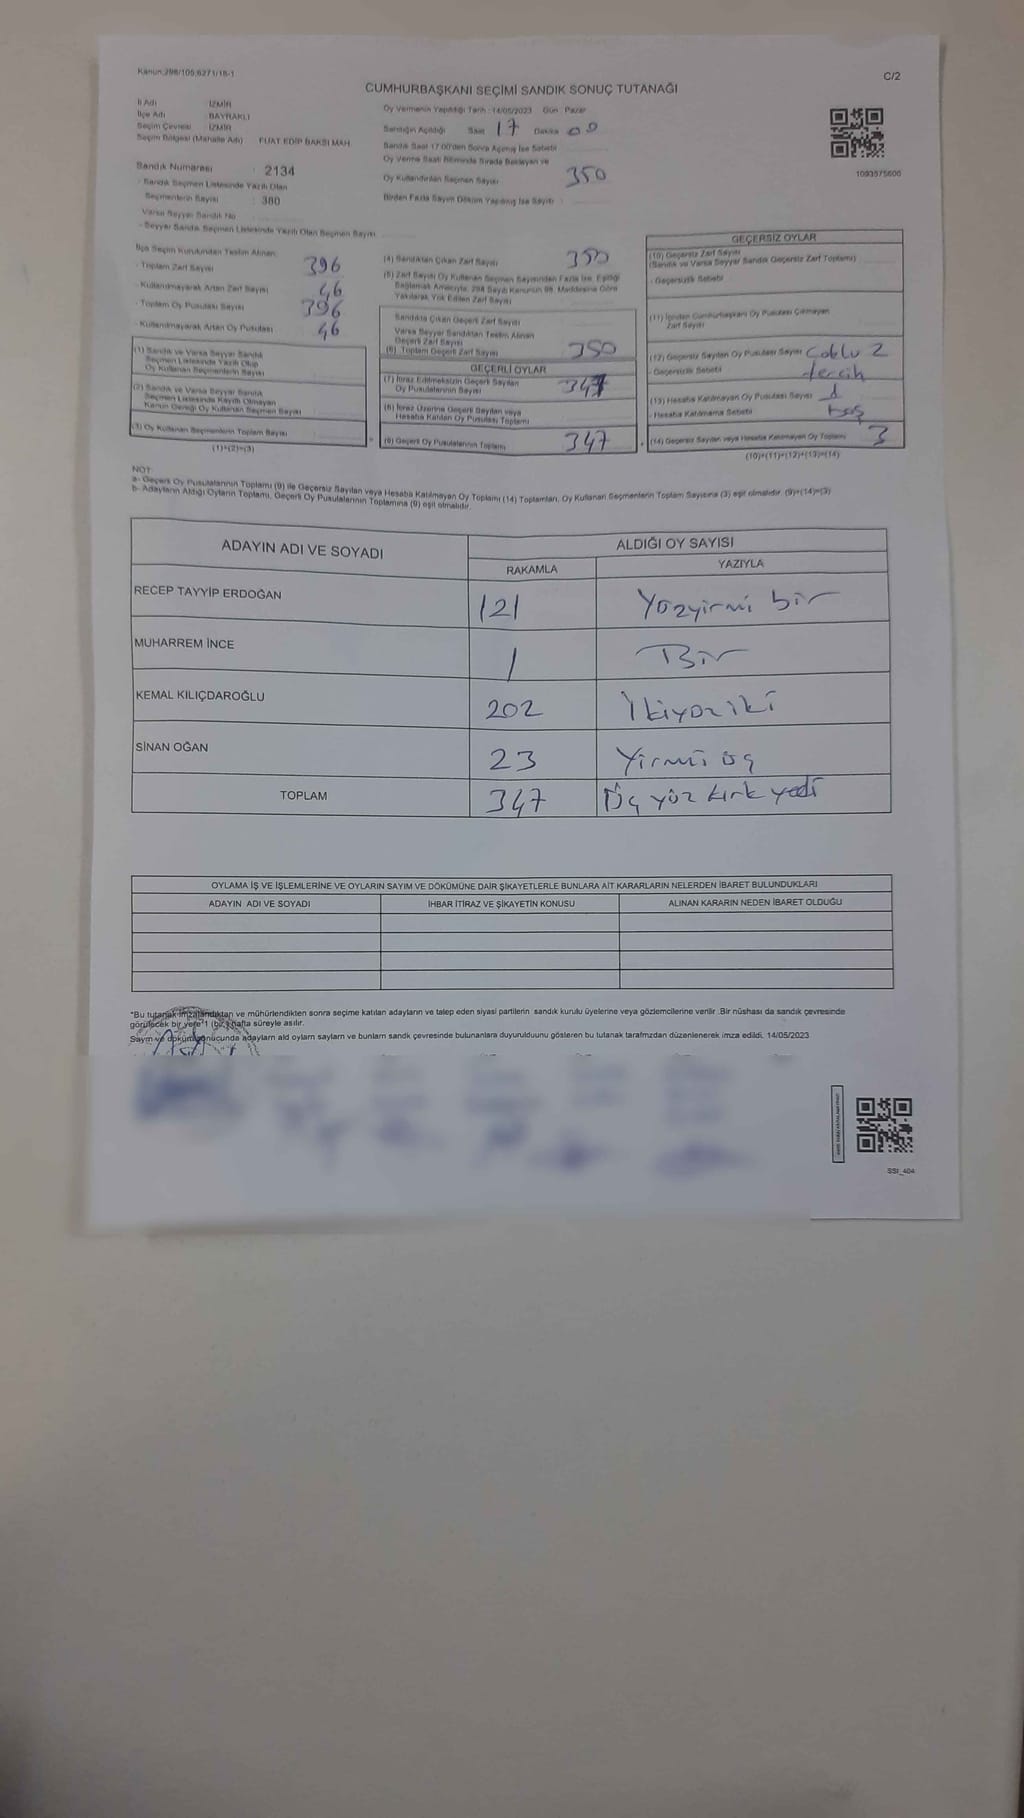 Kanun:298/105,6271/18-1
C/2
CUMHURBAŞKANI SEÇİMİ SANDIK SONUÇ TUTANAĞI
İl Adı : İZMİR
İlçe Adı : BAYRAKLI
Seçim Çevresi : İZMİR
Seçim Bölgesi (Mahalle Adı) : FUAT EDİP BAKSI MAH.
Sandık Numarası : 2134
- Sandık Seçmen Listesinde Yazılı Olan
Seçmenlerin Sayısı : 380
Varsa Seyyar Sandık No
- Seyyar Sandık Seçmen Listesinde Yazılı Olan Seçmen Sayısı
Oy Vermenin Yapıldığı Tarih : 14/05/2023 Gün : Pazar
Sandığın Açıldığı Saat 17 Dakika 00
Sandık Saat 17:00'den Sonra Açılmış İse Sebebi
Oy Verme Saati Bitiminde Sırada Bekleyen ve
Oy Kullandırılan Seçmen Sayısı 350
Birden Fazla Sayım Döküm Yapılmış İse Sayısı :
1093575600
İlçe Seçim Kurulundan Teslim Alınan:
- Toplam Zarf Sayısı 396
- Kullanılmayarak Artan Zarf Sayısı 46
- Toplam Oy Pusulası Sayısı 396
- Kullanılmayarak Artan Oy Pusulası 46
(1) Sandık ve Varsa Seyyar Sandık
Seçmen Listesinde Yazılı Olup
Oy Kullanan Seçmenlerin Sayısı
(2) Sandık ve Varsa Seyyar Sandık
Seçmen Listesinde Kaydı Olmayan
Kanun Gereği Oy Kullanan Seçmen Sayısı
(3) Oy Kullanan Seçmenlerin Toplam Sayısı
(1)+(2)=(3)
(4) Sandıktan Çıkan Zarf Sayısı 350
(5) Zarf Sayısı Oy Kullanan Seçmen Sayısından Fazla İse, Eşitliği
Sağlamak Amacıyla, 298 Sayılı Kanunun 98. Maddesine Göre
Yakılarak Yok Edilen Zarf Sayısı
Sandıkta Çıkan Geçerli Zarf Sayısı
Varsa Seyyar Sandıktan Teslim Alınan
Geçerli Zarf Sayısı
(6) Toplam Geçerli Zarf Sayısı 350
GEÇERLİ OYLAR
(7) İtiraz Edilmeksizin Geçerli Sayılan
Oy Pusulalarının Sayısı 347
(8) İtiraz Üzerine Geçerli Sayılan veya
Hesaba Katılan Oy Pusulası Toplamı
(9) Geçerli Oy Pusulalarının Toplamı 347
GEÇERSİZ OYLAR
(10) Geçersiz Zarf Sayısı
(Sandık ve Varsa Seyyar Sandık Geçersiz Zarf Toplamı)
- Geçersizlik Sebebi
(11) İçinden Cumhurbaşkanı Oy Pusulası Çıkmayan
Zarf Sayısı
(12) Geçersiz Sayılan Oy Pusulası Sayısı Çoklu 2
- Geçersizlik Sebebi tercih
(13) Hesaba Katılmayan Oy Pusulası Sayısı 1
- Hesaba Katılmama Sebebi boş
(14) Geçersiz Sayılan veya Hesaba Katılmayan Oy Toplamı 3
(10)+(11)+(12)+(13)=(14)
NOT:
a- Geçerli Oy Pusulalarının Toplamı (9) ile Geçersiz Sayılan veya Hesaba Katılmayan Oy Toplamı (14) Toplamları, Oy Kullanan Seçmenlerin Toplam Sayısına (3) eşit olmalıdır. (9)+(14)=(3)
b- Adayların Aldığı Oyların Toplamı, Geçerli Oy Pusulalarının Toplamına (9) eşit olmalıdır.
ADAYIN ADI VE SOYADI
ALDIĞI OY SAYISI
RAKAMLA YAZIYLA
RECEP TAYYİP ERDOĞAN 121 Yüzyirmi bir
MUHARREM İNCE 1 Bir
KEMAL KILIÇDAROĞLU 202 İkiyüziki
SİNAN OĞAN 23 Yirmi üç
TOPLAM 347 Üç yüz kırk yedi
OYLAMA İŞ VE İŞLEMLERİNE VE OYLARIN SAYIM VE DÖKÜMÜNE DAİR ŞİKAYETLERLE BUNLARA AİT KARARLARIN NELERDEN İBARET BULUNDUKLARI
ADAYIN ADI VE SOYADI İHBAR İTİRAZ VE ŞİKAYETİN KONUSU ALINAN KARARIN NEDEN İBARET OLDUĞU
"Bu tutanak imzalandıktan ve mühürlendikten sonra seçime katılan adayların ve talep eden siyasi partilerin sandık kurulu üyelerine veya gözlemcilerine verilir .Bir nüshası da sandık çevresinde
görülecek bir yere"1 (bir) hafta süreyle asılır.
Sayım ve döküm sonucunda adayların ald oylarn saylarn ve bunlarn sandk çevresinde bulunanlara duyurulduunu gösteren bu tutanak tarafmzdan düzenlenerek imza edildi. 14/05/2023
SSI_404